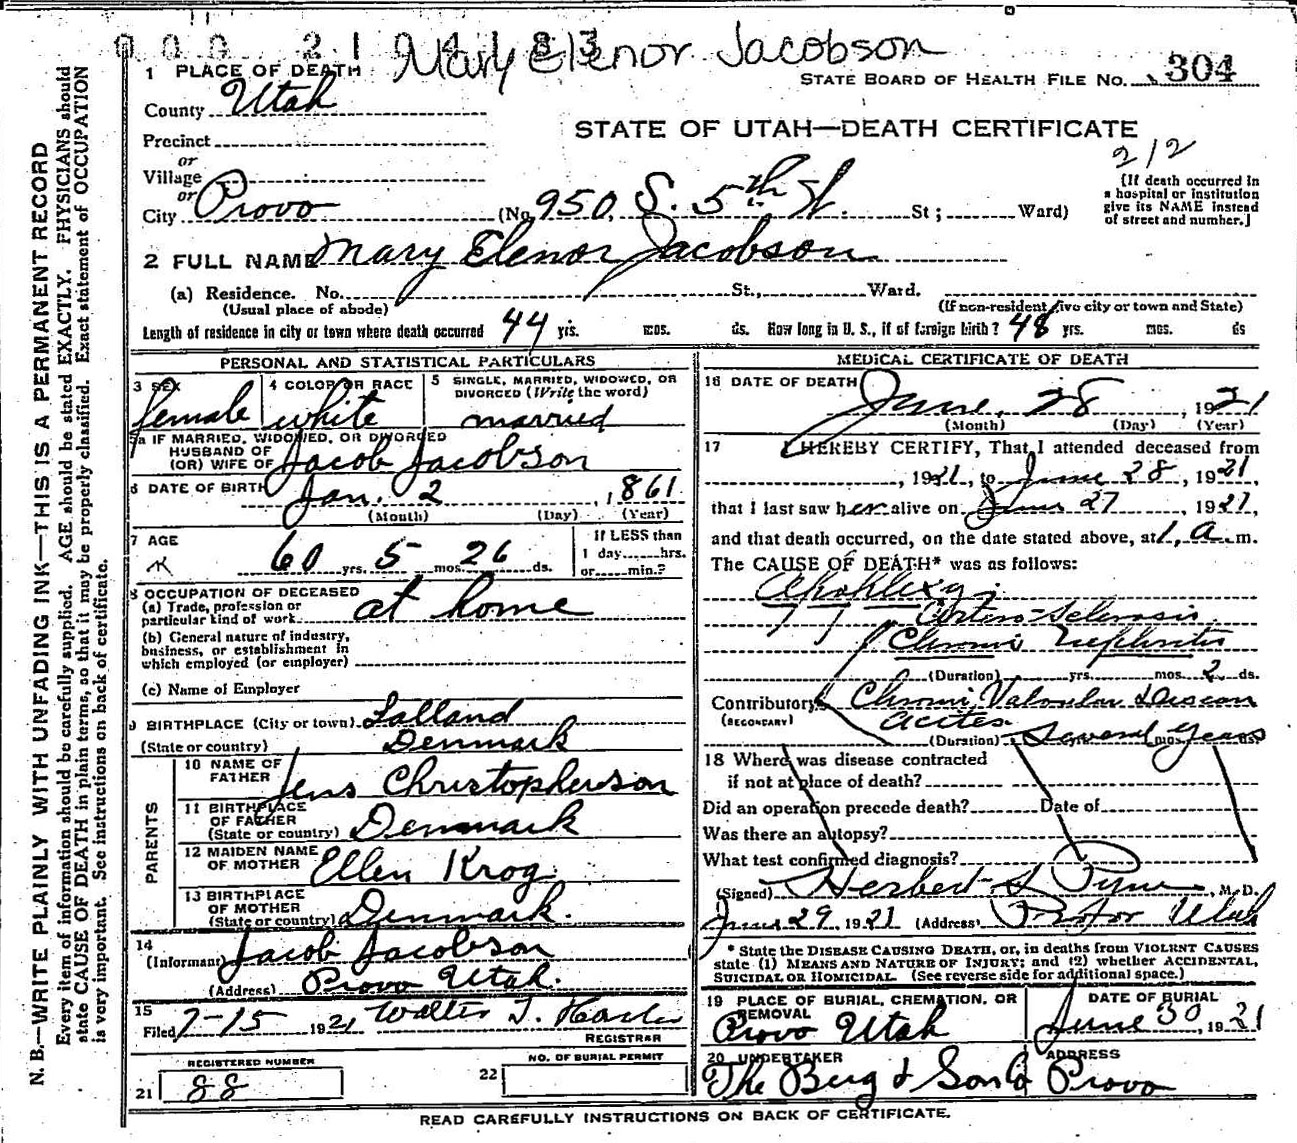 000 2104183
Mary Elenor Jacobson
STATE BOARD OF HEALTH FILE NO. 304
1 PLACE OF DEATH
County Utah
STATE OF UTAH—DEATH CERTIFICATE
Precinct
or
Village
or
City Provo (No. 950 S. 5th St. St; Ward)
212
[If death occurred in
a hospital or institution
give its NAME instead
of street and number.]
2 FULL NAME Mary Elenor Jacobson
(a) Residence. No. St., Ward.
(Usual place of abode) (If non-resident give city or town and State)
Length of residence in city or town where death occurred 44 yrs. mos. ds. How long in U. S., if of foreign birth? 48 yrs. mos. ds
PERSONAL AND STATISTICAL PARTICULARS
3 SEX
female
4 COLOR OR RACE
white
5 SINGLE, MARRIED, WIDOWED, OR
DIVORCED (Write the word)
married
5a IF MARRIED, WIDOWED, OR DIVORCED
HUSBAND OF
(OR) WIFE OF Jacob Jacobson
6 DATE OF BIRTH Jan. 2, 1861
(Month) (Day) (Year)
7 AGE
60 yrs. 5 mos. 26 ds.
If LESS than
1 day......hrs.
or......min.?
8 OCCUPATION OF DECEASED
(a) Trade, profession or
particular kind of work at home
(b) General nature of industry,
business, or establishment in
which employed (or employer)
(c) Name of Employer
9 BIRTHPLACE (City or town) Lalland
(State or country) Denmark
PARENTS
10 NAME OF
FATHER Jens Christopherson
11 BIRTHPLACE
OF FATHER
(State or country) Denmark
12 MAIDEN NAME
OF MOTHER Ellen Krog
13 BIRTHPLACE
OF MOTHER
(State or country) Denmark.
14
(Informant) Jacob Jacobson
(Address) Provo Utah.
15
Filed 7-15 1921 Walter T.
REGISTRAR
REGISTERED NUMBER
21 88
NO. OF BURIAL PERMIT
22
MEDICAL CERTIFICATE OF DEATH
16 DATE OF DEATH June, 28, 1921
(Month) (Day) (Year)
17 I HEREBY CERTIFY, That I attended deceased from
, 1921, to June 28, 1921,
that I last saw her alive on June 27, 1921,
and that death occurred, on the date stated above, at 1, a. m.
The CAUSE OF DEATH* was as follows:
Apoplexy;
Arterio-Sclerosis
Chronic Nephritis
(Duration) yrs. mos. 2 ds.
Contributory Chronic Valvular
(SECONDARY)
(Duration) Several years mos. ds.
18 Where was disease contracted
if not at place of death?
Did an operation precede death? Date of
Was there an autopsy?
What test confirmed diagnosis?
(Signed) Herbert S Pyne, M. D.
June 29 1921 (Address) Provo Utah
* State the DISEASE CAUSING DEATH, or, in deaths from VIOLENT CAUSES
state (1) MEANS AND NATURE OF INJURY; and (2) whether ACCIDENTAL,
SUICIDAL OR HOMICIDAL. (See reverse side for additional space.)
19 PLACE OF BURIAL, CREMATION, OR
REMOVAL
Provo Utah
DATE OF BURIAL
June 30, 1921
20 UNDERTAKER
The Berg & Sons Co
ADDRESS
Provo
READ CAREFULLY INSTRUCTIONS ON BACK OF CERTIFICATE.
N. B.—WRITE PLAINLY WITH UNFADING INK—THIS IS A PERMANENT RECORD
Every item of information should be carefully supplied. AGE should be stated EXACTLY. PHYSICIANS should
state CAUSE OF DEATH in plain terms, so that it may be properly classified. Exact statement of OCCUPATION
is very important. See instructions on back of certificate.